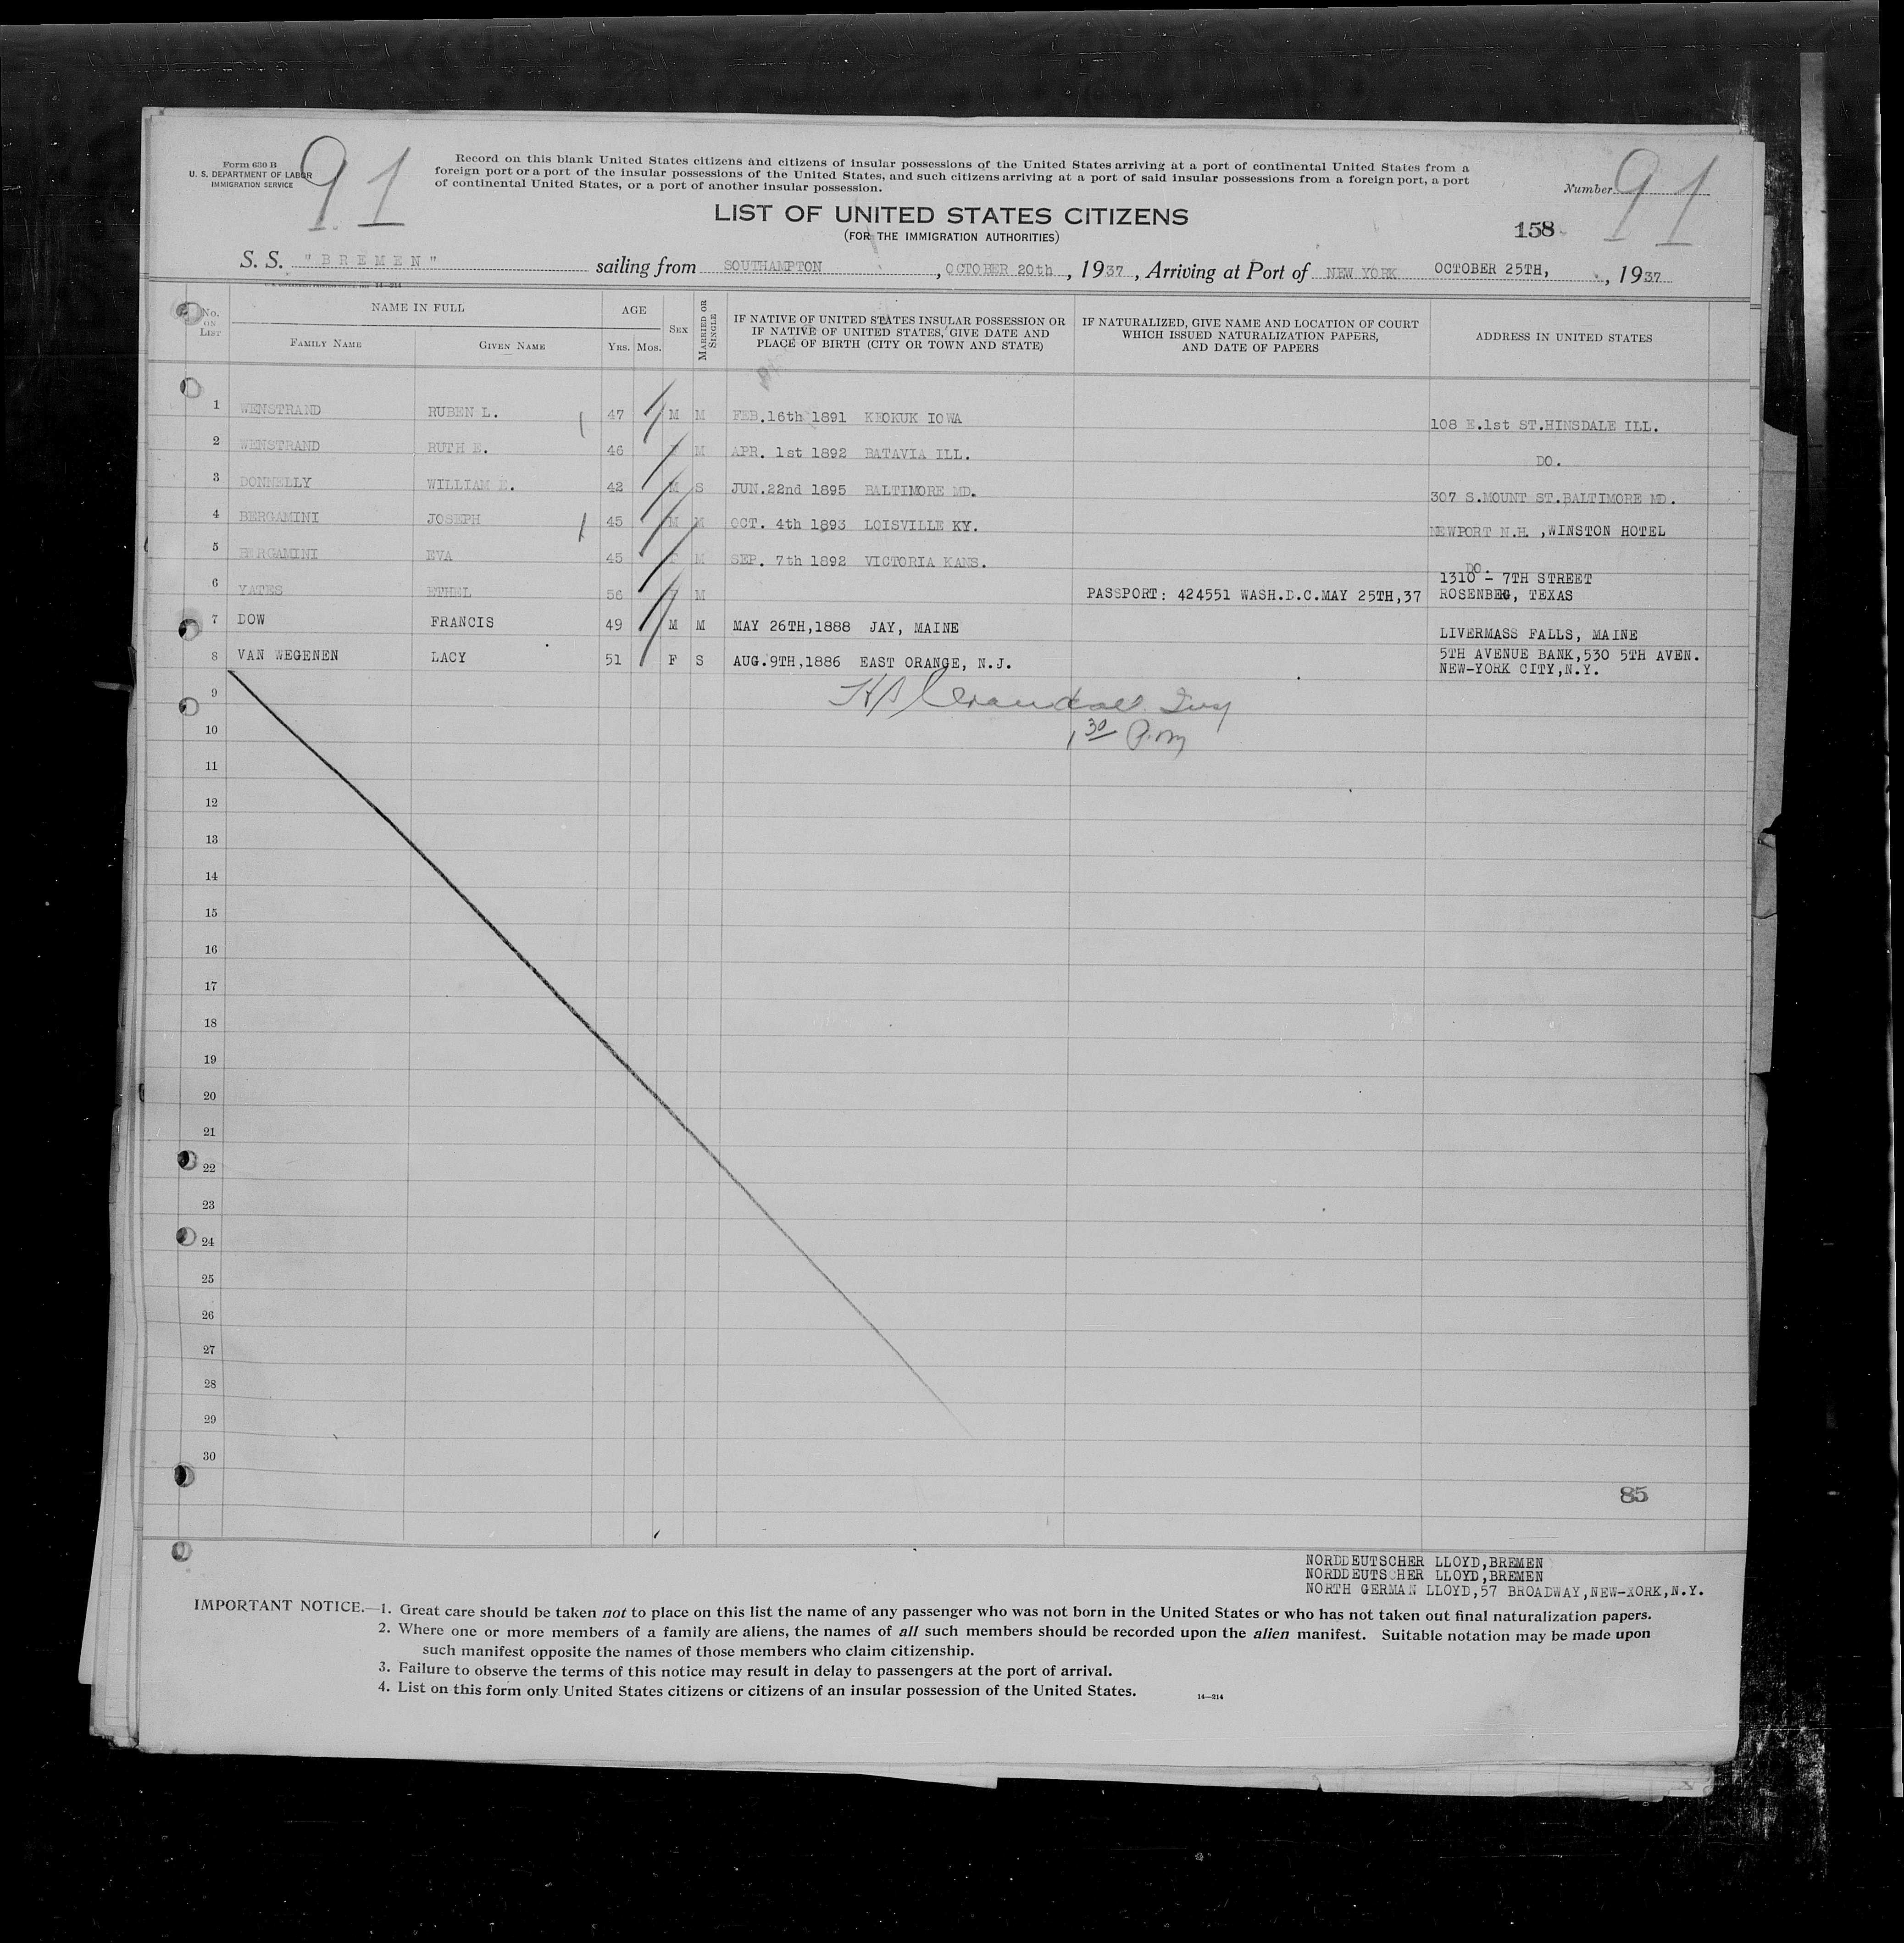 Form 630 B
U. S. DEPARTMENT OF LABOR
IMMIGRATION SERVICE
91
Record on this blank United States citizens and citizens of insular possessions of the United States arriving at a port of continental United States from a
foreign port or a port of the insular possessions of the United States, and such citizens arriving at a port of said insular possessions from a foreign port, a port
of continental United States, or a port of another insular possession.
Number 91
LIST OF UNITED STATES CITIZENS
(FOR THE IMMIGRATION AUTHORITIES)
158
S. S. "BREMEN" sailing from SOUTHAMPTON, OCTOBER 20th, 1937, Arriving at Port of NEW YORK OCTOBER 25TH, , 1937
14—214
No. ON LIST
NAME IN FULL
FAMILY NAME
GIVEN NAME
AGE
YRS. MOS.
SEX
MARRIED OR SINGLE
IF NATIVE OF UNITED STATES INSULAR POSSESSION OR
IF NATIVE OF UNITED STATES, GIVE DATE AND
PLACE OF BIRTH (CITY OR TOWN AND STATE)
IF NATURALIZED, GIVE NAME AND LOCATION OF COURT
WHICH ISSUED NATURALIZATION PAPERS,
AND DATE OF PAPERS
ADDRESS IN UNITED STATES
1 WENSTRAND RUBEN L. 47 M M FEB.16th 1891 KEOKUK IOWA 108 E.1st ST.HINSDALE ILL.
2 WENSTRAND RUTH E. 46 M APR. 1st 1892 BATAVIA ILL. DO.
3 DONNELLY WILLIAM E. 42 M S JUN.22nd 1895 BALTIMORE MD. 307 S.MOUNT ST.BALTIMORE MD.
4 BERGAMINI JOSEPH 45 M M OCT. 4th 1893 LOISVILLE KY. NEWPORT N.H. ,WINSTON HOTEL
5 BERGAMINI EVA 45 F M SEP. 7th 1892 VICTORIA KANS. DO.
6 YATES ETHEL 56 M PASSPORT: 424551 WASH.D.C.MAY 25TH,37 1310 - 7TH STREET
ROSENBEG, TEXAS
7 DOW FRANCIS 49 M M MAY 26TH,1888 JAY, MAINE LIVERMASS FALLS, MAINE
8 VAN WEGENEN LACY 51 F S AUG.9TH,1886 EAST ORANGE, N.J. 5TH AVENUE BANK,530 5TH AVEN.
NEW-YORK CITY,N.Y.
9
Crandall
10
1 30 P.m
11
12
13
14
15
16
17
18
19
20
21
22
23
24
25
26
27
28
29
30
85
NORDDEUTSCHER LLOYD,BREMEN
NORDDEUTSCHER LLOYD,BREMEN
NORTH GERMAN LLOYD,57 BROADWAY,NEW-YORK,N.Y.
IMPORTANT NOTICE.—1. Great care should be taken not to place on this list the name of any passenger who was not born in the United States or who has not taken out final naturalization papers.
2. Where one or more members of a family are aliens, the names of all such members should be recorded upon the alien manifest. Suitable notation may be made upon
such manifest opposite the names of those members who claim citizenship.
3. Failure to observe the terms of this notice may result in delay to passengers at the port of arrival.
4. List on this form only United States citizens or citizens of an insular possession of the United States.
14—214